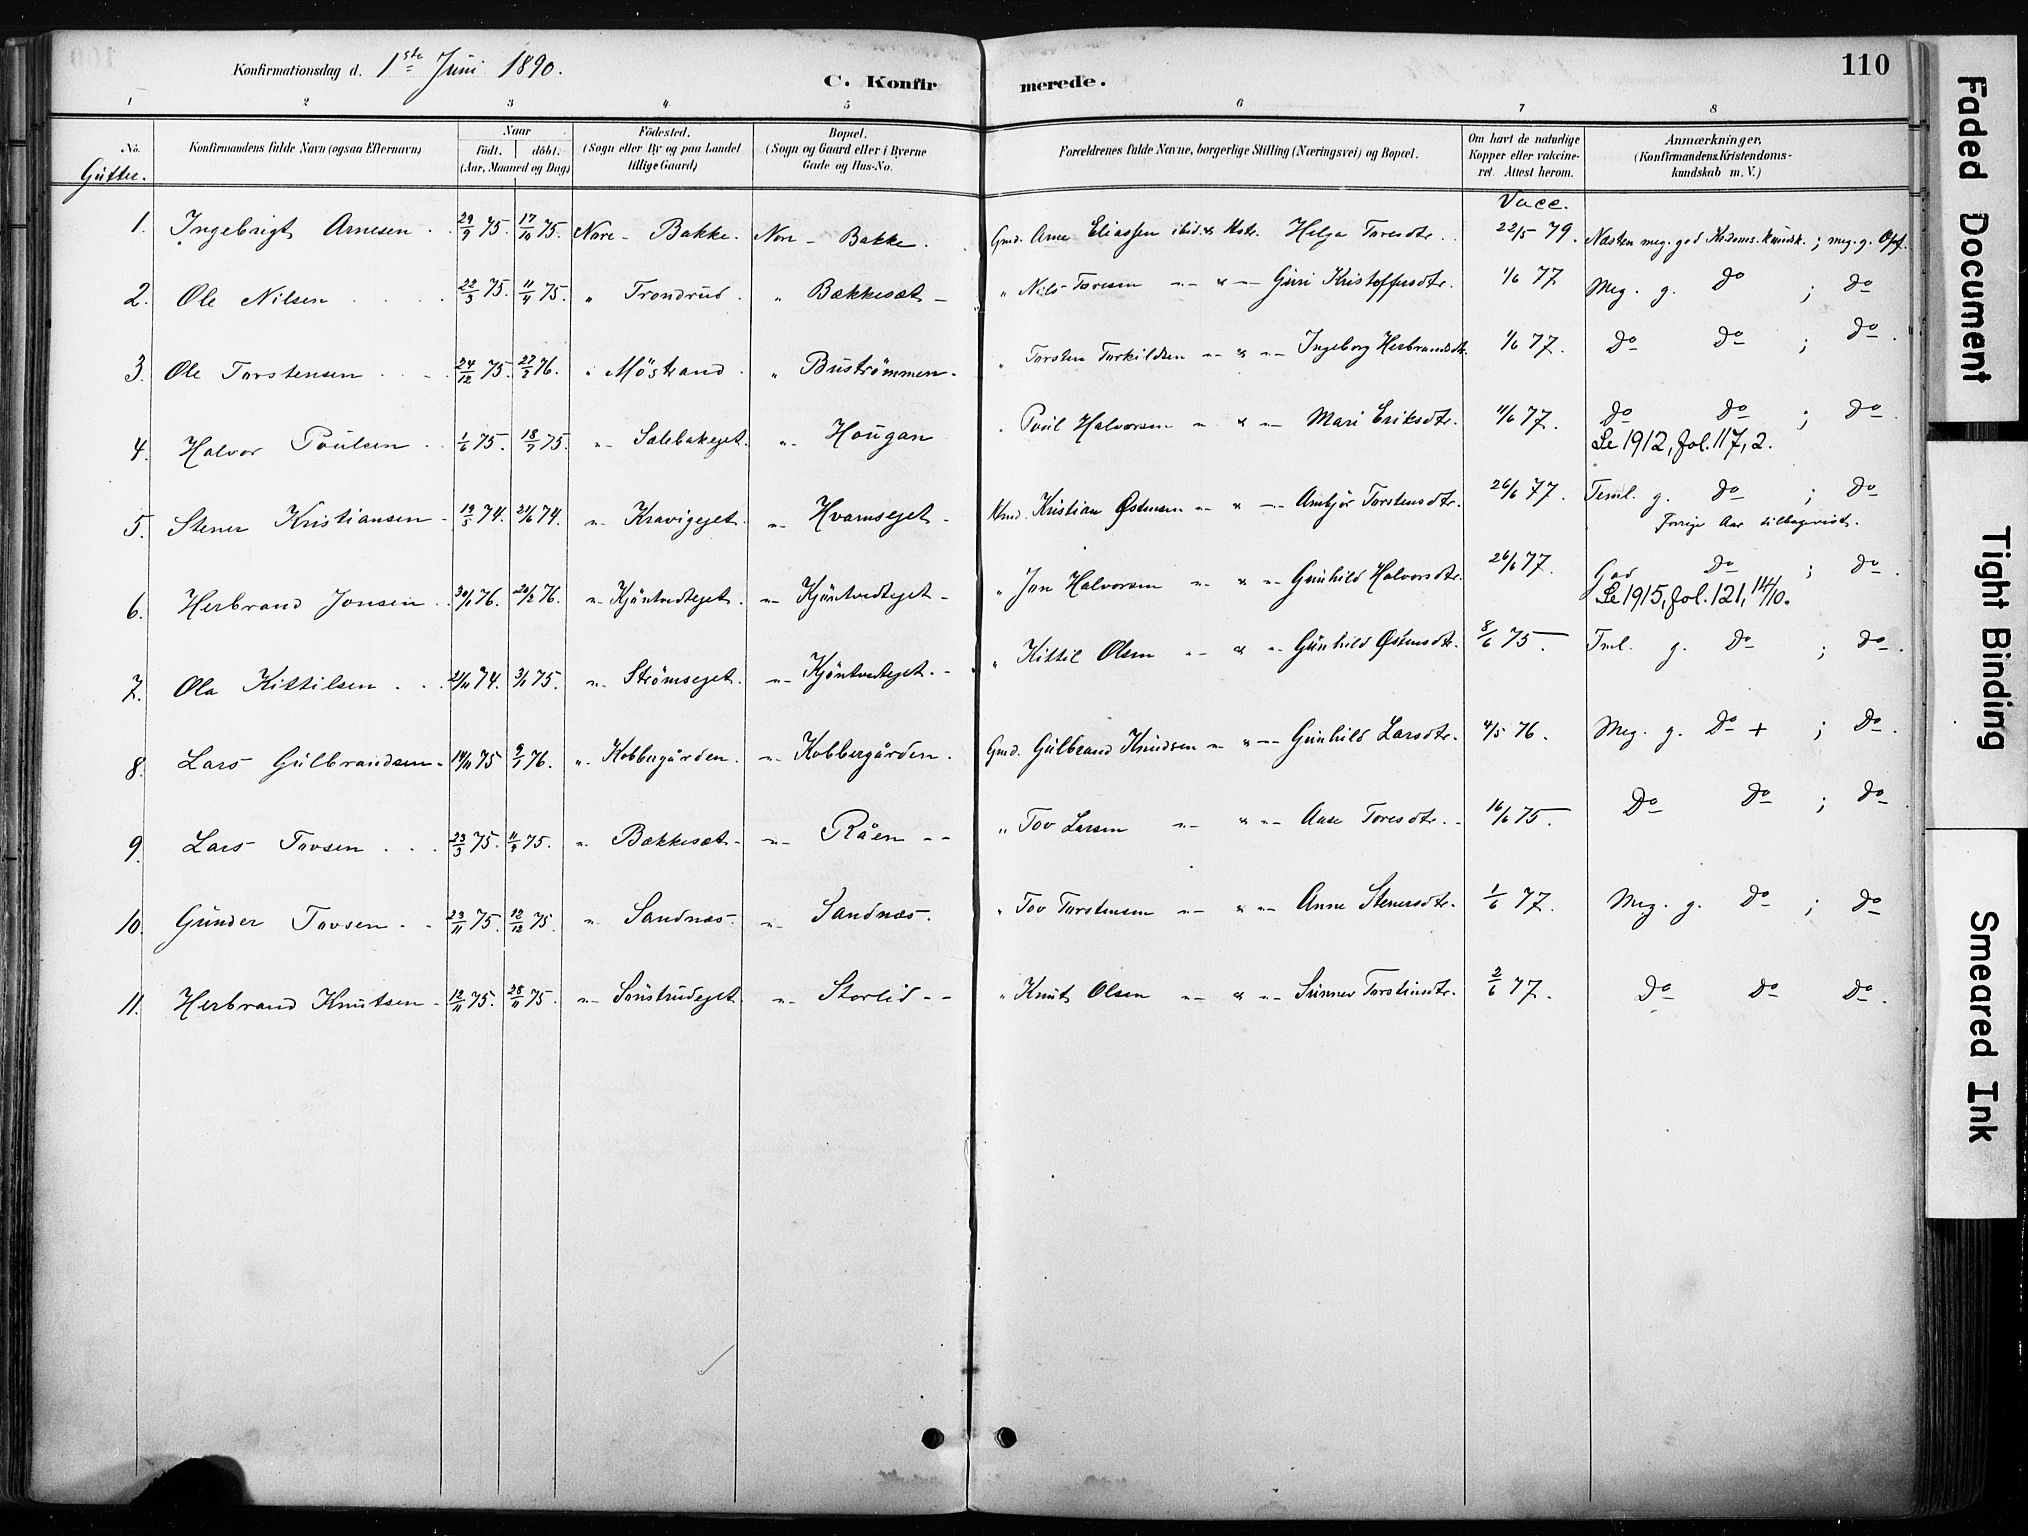 Konfirmationsdag d. 1ste Juni 1890.
C. Konfirmerede.
110
1 2 3 4 5 6 7 8
No. Konfirmandens fulde Navn (ogsaa Efternavn) Naar Födt. döbt. (Aar, Maaned og Dag) Födested. (Sogn eller By og paa Landet tillige Gaard) Bopæl. (Sogn og Gaard eller i Byerne Gade og Hus-No. Forældrenes fulde Navne, borgerlige Stilling (Næringsvei) og Bopæl. Om havt de naturlige Kopper eller vakcineret. Attest herom. Anmærkninger, (Konfirmandens Kristendomskundskab m. V.)
Gutter.
Vacc.
1. Ingebrigt Arnesen 29/9 75. 17/10 75. Nore - Bakke. Nore - Bakke. Gmd. Arne Eliassen ibid. & Hstr. Helga Toresdtr. 22/5 79. Næsten meg. god Kr.doms. kundsk.; meg. g. Opf.
2. Ole Nilsen 22/3 75. 11/4 75. " Trondrud. " Bækkesæt - " Nils Toresen -"- & -"- Guri Kristoffersdtr. 1/6 77 Meg. g. Do ; Do
3. Ole Torstensen 24/12 75. 27/2 76. " Möstrand " Buströmmen. " Torsten Torkildsen -"- & -"- Ingeborg Herbrandsdtr. 1/6 77. Do Do ; Do.
4. Halvor Poulsen 1/6 75. 18/7 75. -"- Salebakeget. " Hougan " Poul Halvorsen -"- & -"- Mari Eriksdtr. 11/6 77. Do Do ; Do.
Se 1912, fol. 117, 2.
5. Stener Kristiansen 19/5 74. 21/6 74. -"- Kravigeget. -"- Hvamseget - Hmd. Kristian Østensen -"- & -"- Ambjör Torstensdtr. 26/6 77. Teml. g. Do ; Do
Forrige Aar tilbagevist.
6. Herbrand Jonsen 30/1 76. 20/2 76. -"- Kjöntvedteget. -"- Kjöntvedteget - " Jon Halvorsen -"- & -"- Gunhild Halvorsdtr. 26/6 77. God Do ; Do.
Se 1915, fol. 121, 14/10.
7. Ola Kittilsen 21/11 74. 3/1 75. -"- Strømseget. -"- Kjöntvedteget. - " Kittil Olsen -"- & -"- Gunhild Østensdtr. 8/6 75. Tml. g. Do ; Do.
8. Lars Gulbrandsen - 14/11 75 9/1 76. " Kobbergården. -"- Kobbergården. Gmd. Gulbrand Knudsen -"- & -"- Gunhild Larsdtr. 4/5 76. Meg. g. Do + ; Do.
9. Lars Tovsen 23/3 75. 11/4 75. -"- Bækkesæt - -"- Råen - - " Tov Larsen -"- & -"- Aase Toresdtr. - 16/6 75 Do Do ; Do.
10. Gunder Tovsen 23/11 75. 12/12 75. -"- Sandnæs. -"- Sandnæs. " Tov Torstensen -"- & -"- Anne Stenersdtr. 1/6 77. Meg. g. Do ; Do
11. Herbrand Knutsen - 12/11 75. 28/11 75. -"- Sönstrudeget. -"- Storlid - - " Knut Olsen -"- & -"- Sünnev Torstensdtr. 2/6 77. Do Do Do.
Faded Document
Tight Binding
Smeared Ink